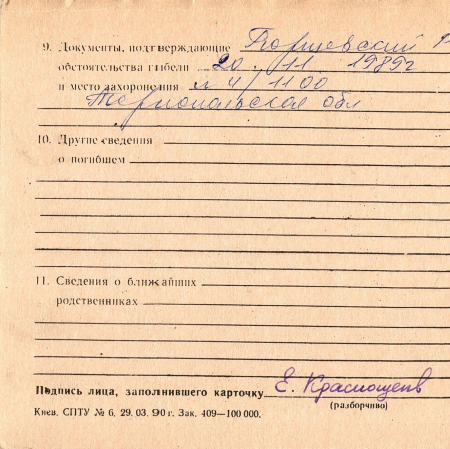 9. Документы, подтверждающие Борщевский
обстоятельства гибели 20. 11 1989г
и место захоронения № 4/1100
Тернопольская обл
10. Другие сведения
о погибшем
11. Сведения о ближайших
родственниках
Подпись лица, заполнившего карточку Е. Краснощепв
(разборчиво)
Киев. СПТУ № 6. 29. 03. 90 г. Зак. 409—100 000.